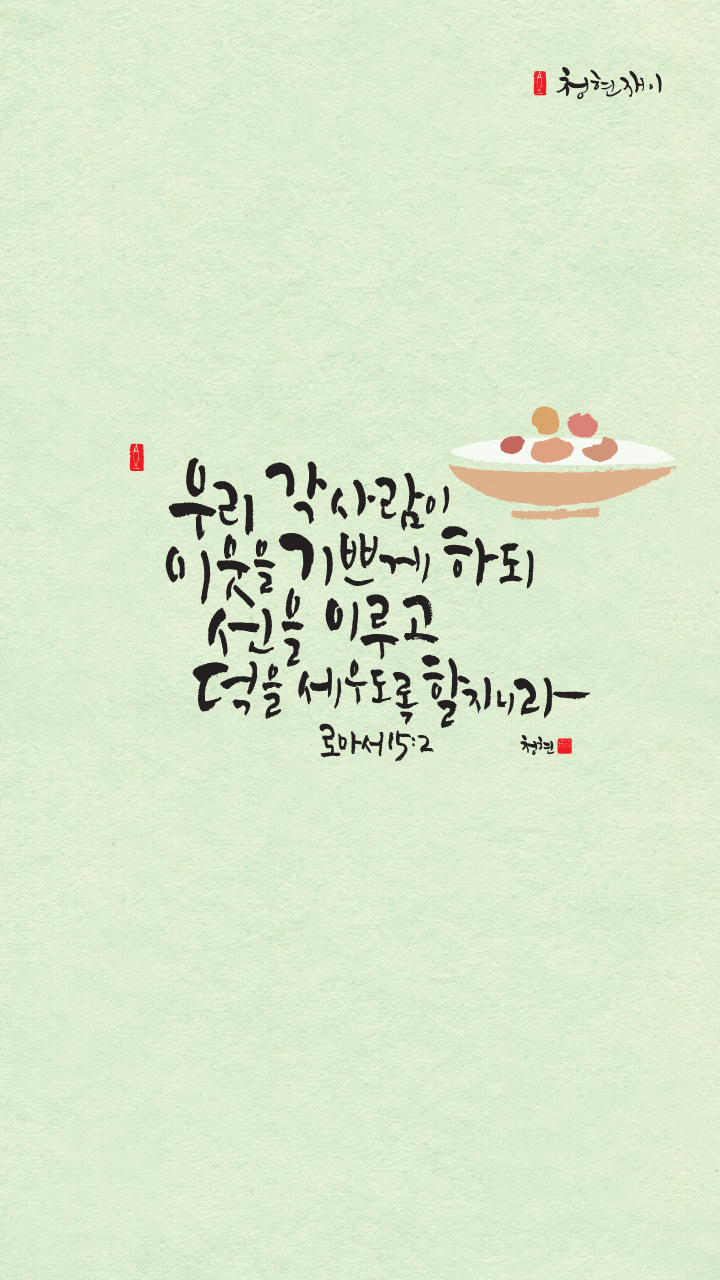 청현재이
우리 각 사람이
이웃을 기쁘게 하되
선을 이루고
덕을 세우도록 할지니라
로마서 15:2
청현